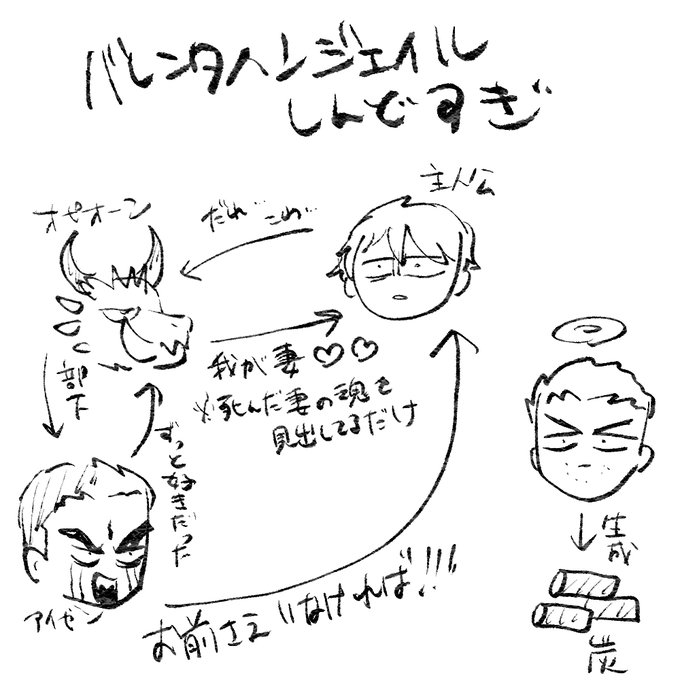 バレンタインジェイル
しんどすぎ
主人公
オピオーン
だれ…こわ…
我が妻♡♡
※死んだ妻の魂を
見出してるだけ
部下
ずっと好きだった
アイゼン
お前さえいなければ!!!
生成
炭